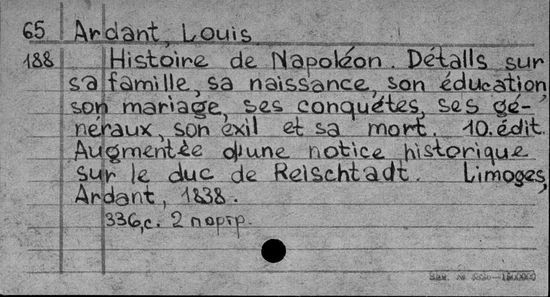 65 Ardant, Louis
188 Histoire de Napoléon. Détalls sur
sa famille, sa naissance, son éducation,
son mariage, ses conquétes, ses gé-
néraux, son éxil et sa mort. 10. édit.
Augmentée d'une notice historique
sur le duc de Relschtadt. Limoges,
Ardant, 1838.
336,c. 2 портр.